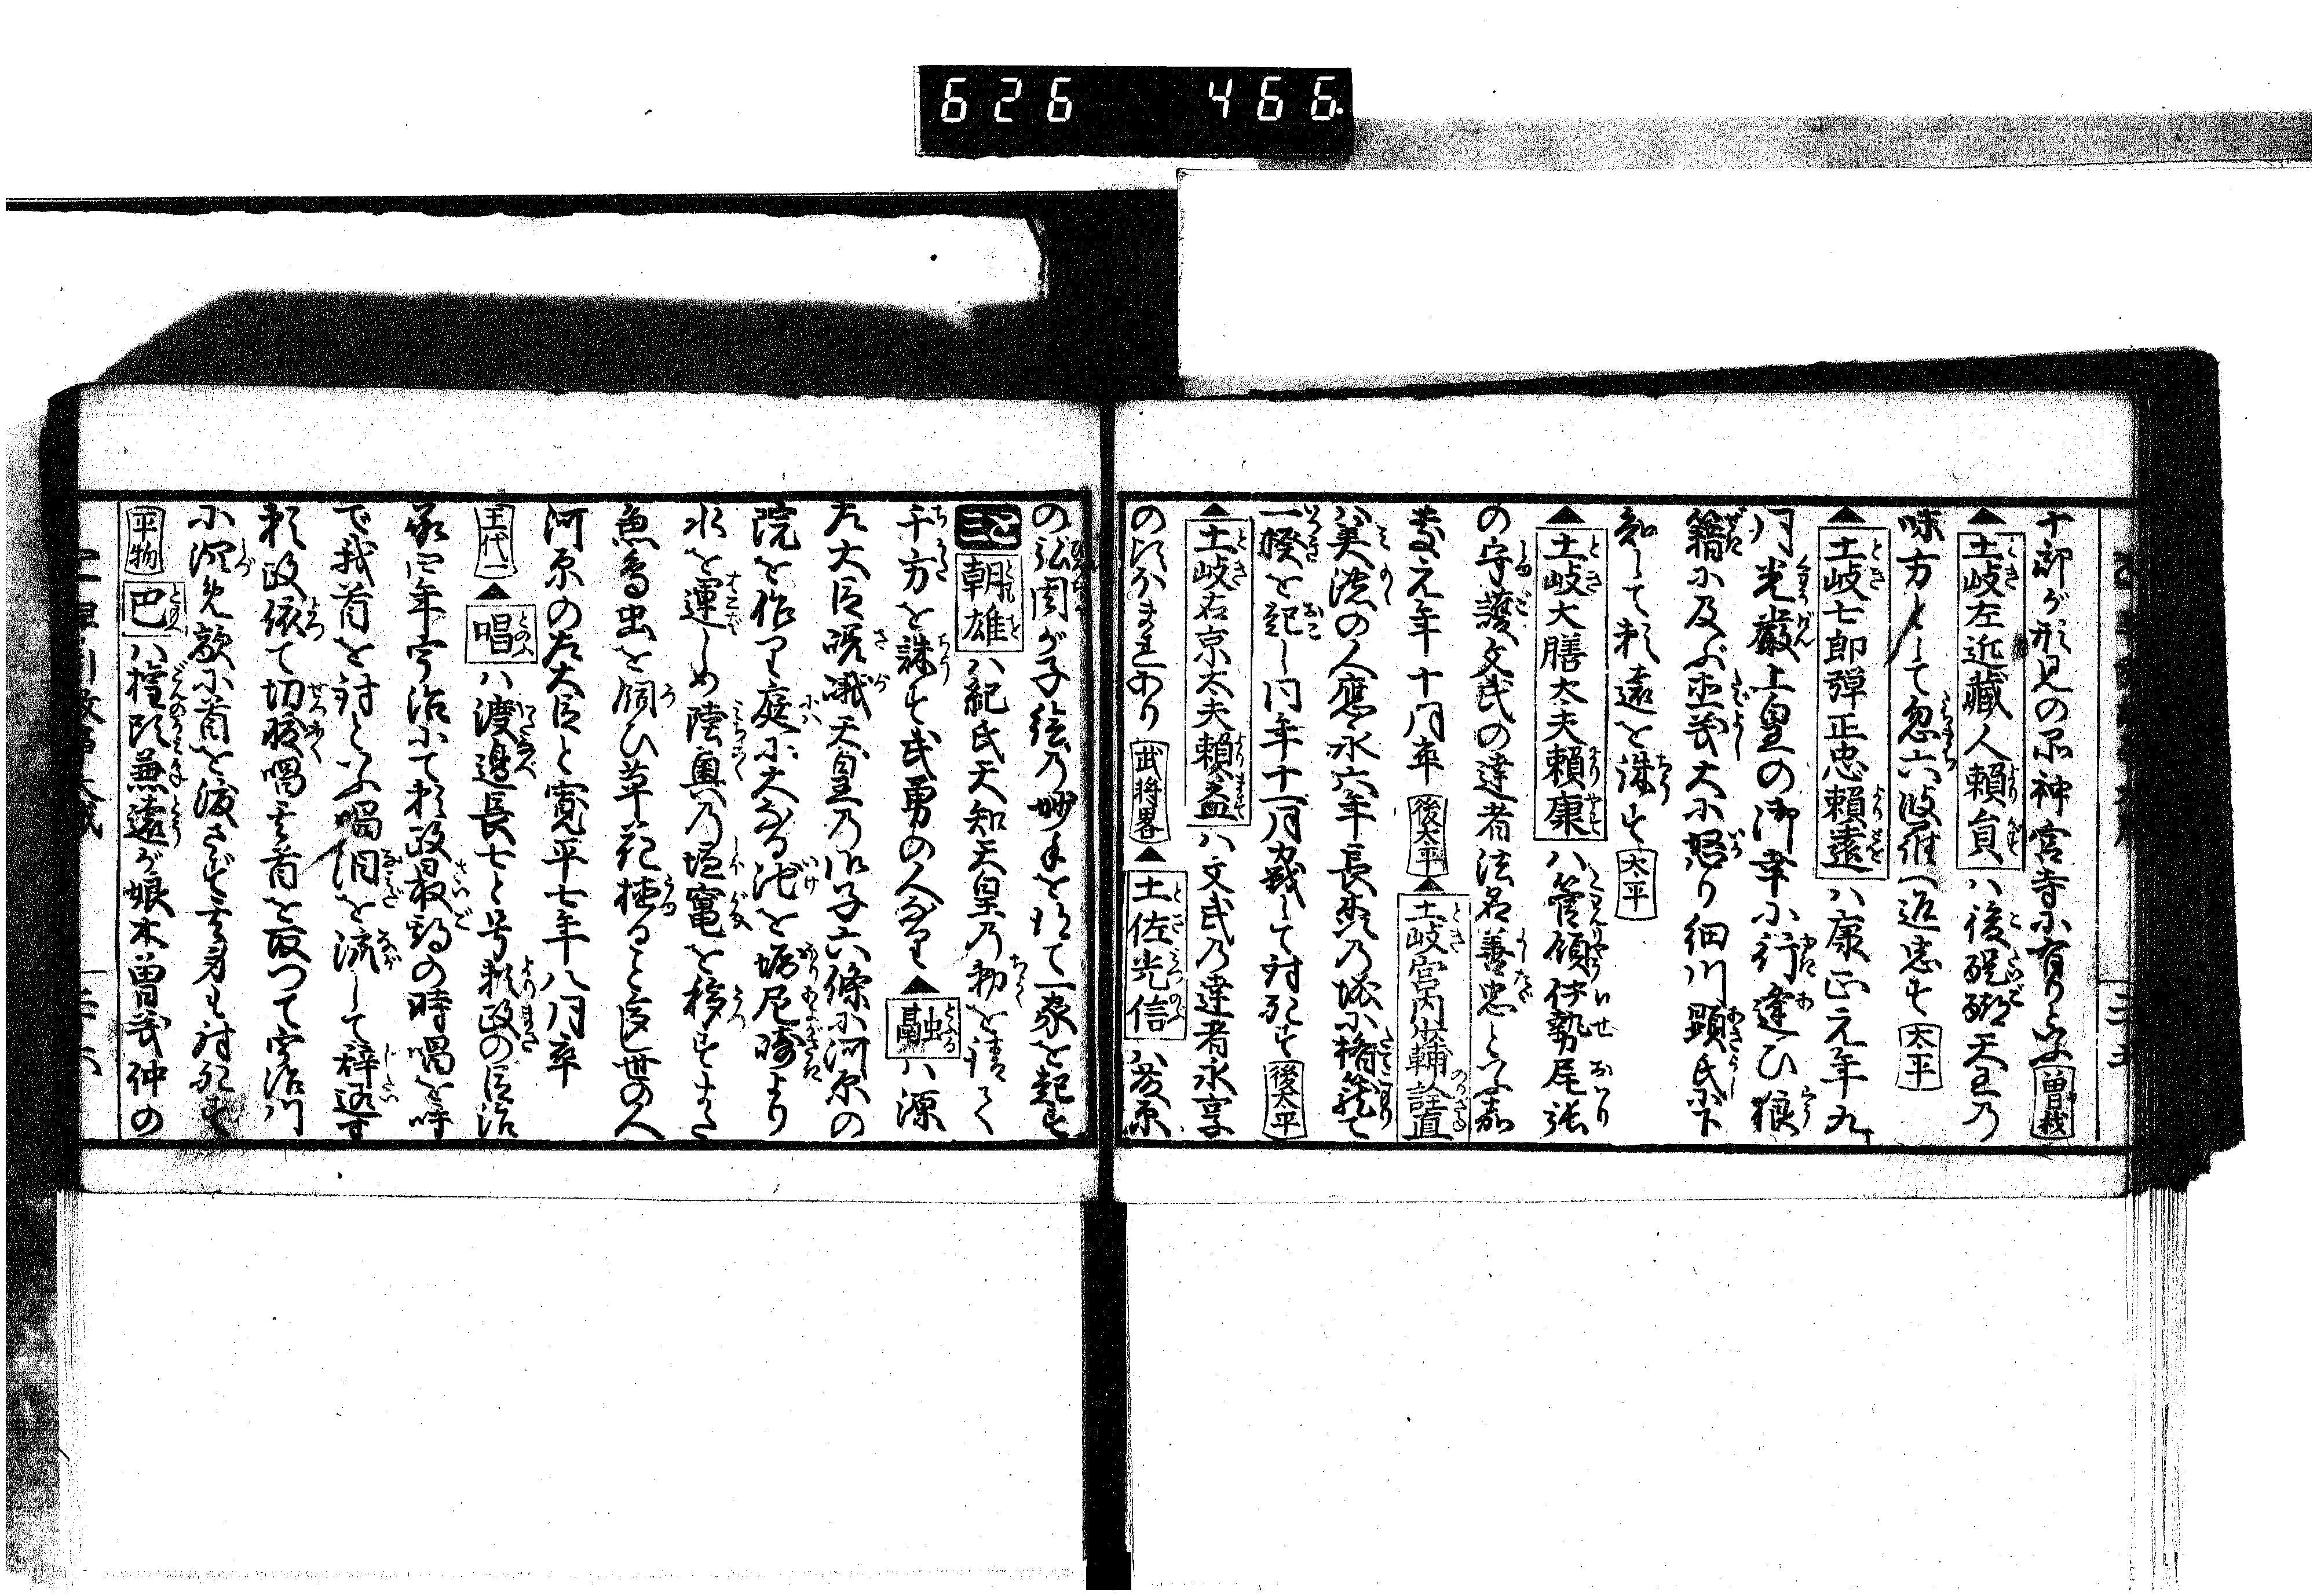 626 466
十郎が形見の品神宮寺に有りと云曽我
▲土岐左近藏人頼貟ハ後醍醐天王乃
味方として忽六波羅へ返忠す太平
▲土岐七郎彈正忠頼遠ハ康正元年九
月光嚴上皇の御幸に行逢ひ狼
籍に及ぶ直義大に怒り細川顕氏に下
知して頼遠を誅す太平
▲土岐大膳太夫頼康ハ管領伊勢尾張
の守護文武の達者法名善忠と云嘉
慶元年十月卒後太平▲土岐宮内少輔詮直
ハ美濃の人應永六年長森乃城に楯篭て
一揆を起し同年十一月力戦して討死す後太平
▲土岐右京太夫頼益ハ文武乃達者永享
の頃ほまれあり武将畧▲土佐光信ハ藤原
の弘周が子絵乃妙手を得て一家を起す
朝雄ハ紀氏天知天皇乃勅を請て
千方を誅す武勇の人なり▲融ハ源
左大臣嵯峨天皇乃御子六條に河原の
院を作り庭に大なる池を堀尼崎より
水を運しめ陸奥乃塩竃を移すまた
魚鳥虫を飼ひ草花植ると移し世の人
河原の左大臣と寛平七年八月卒
王代一▲唱ハ渡邉長七と号頼政の臣治
承四年宇治にて頼政最期の時唱を呼
で我首を討と云唱泪を流して辞退す
頼政依て切腹唱其首を取つて宇治川
に沉め敵に首を渡さず其身も討死す
平物巴ハ權頭兼遠が娘木曽義仲の